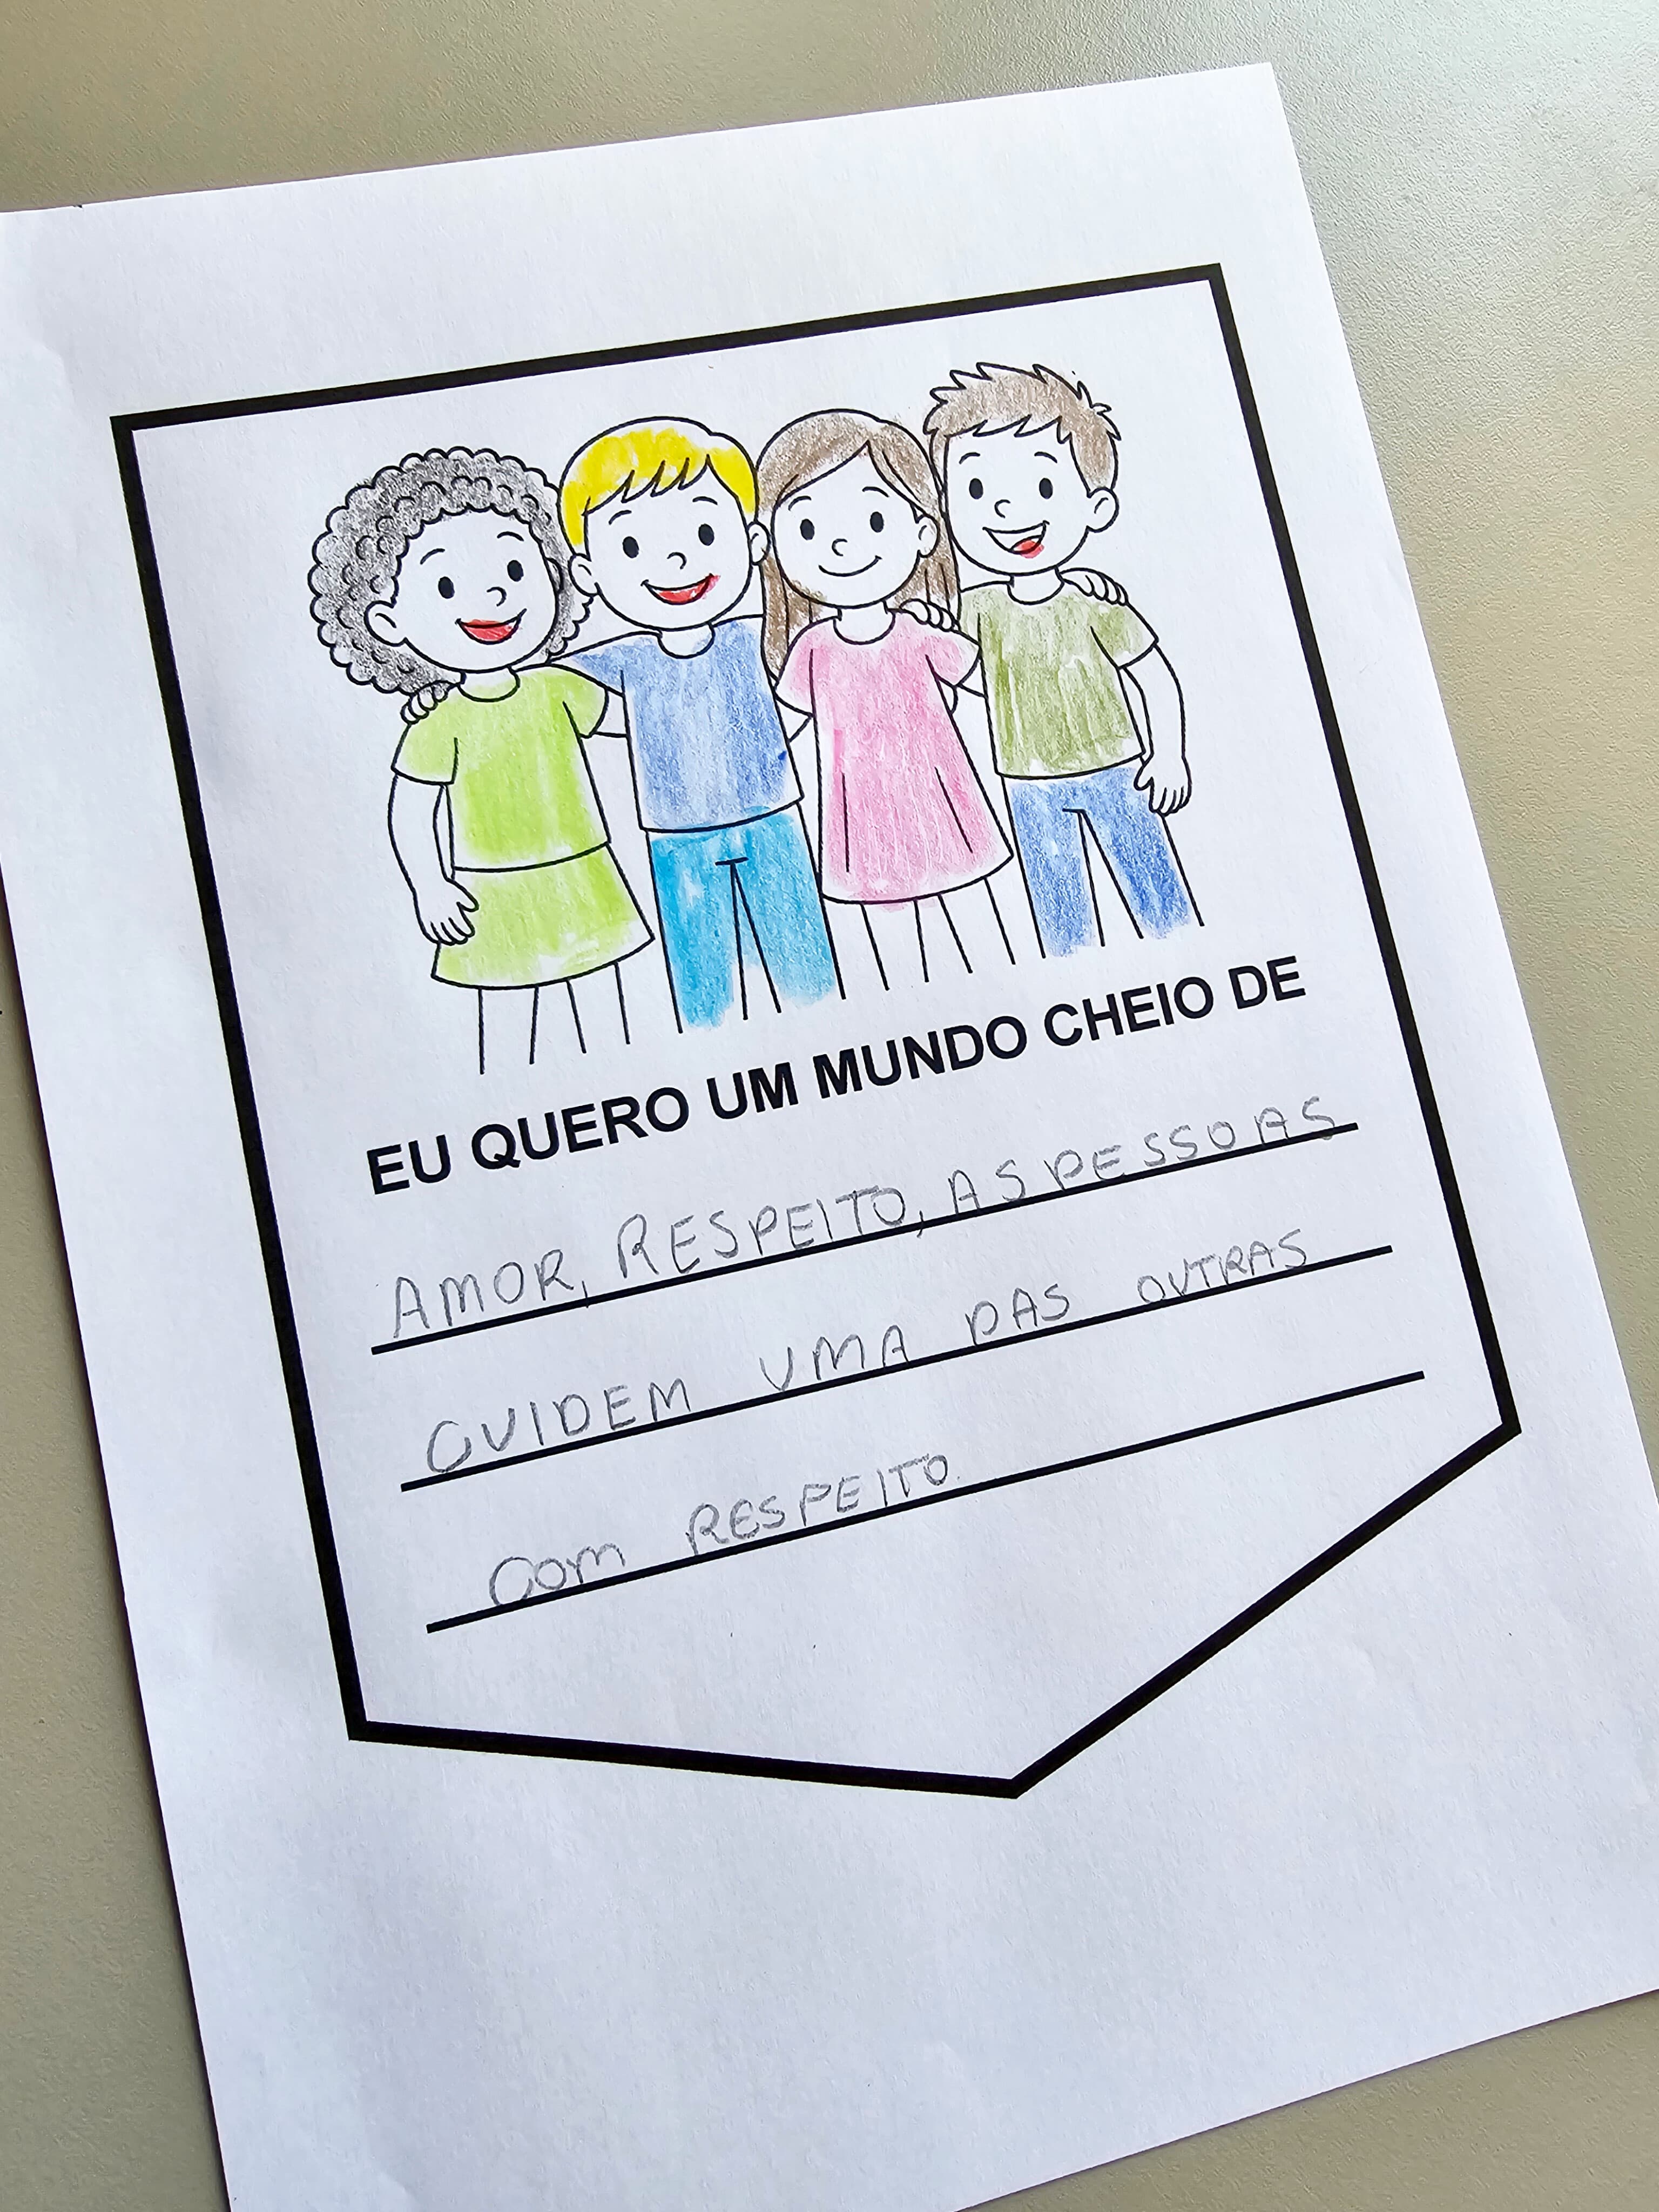 EU QUERO UM MUNDO CHEIO DE
AMOR, RESPEITO, AS PESSOAS
CUIDEM UMA DAS OUTRAS
Com RESPEITO.